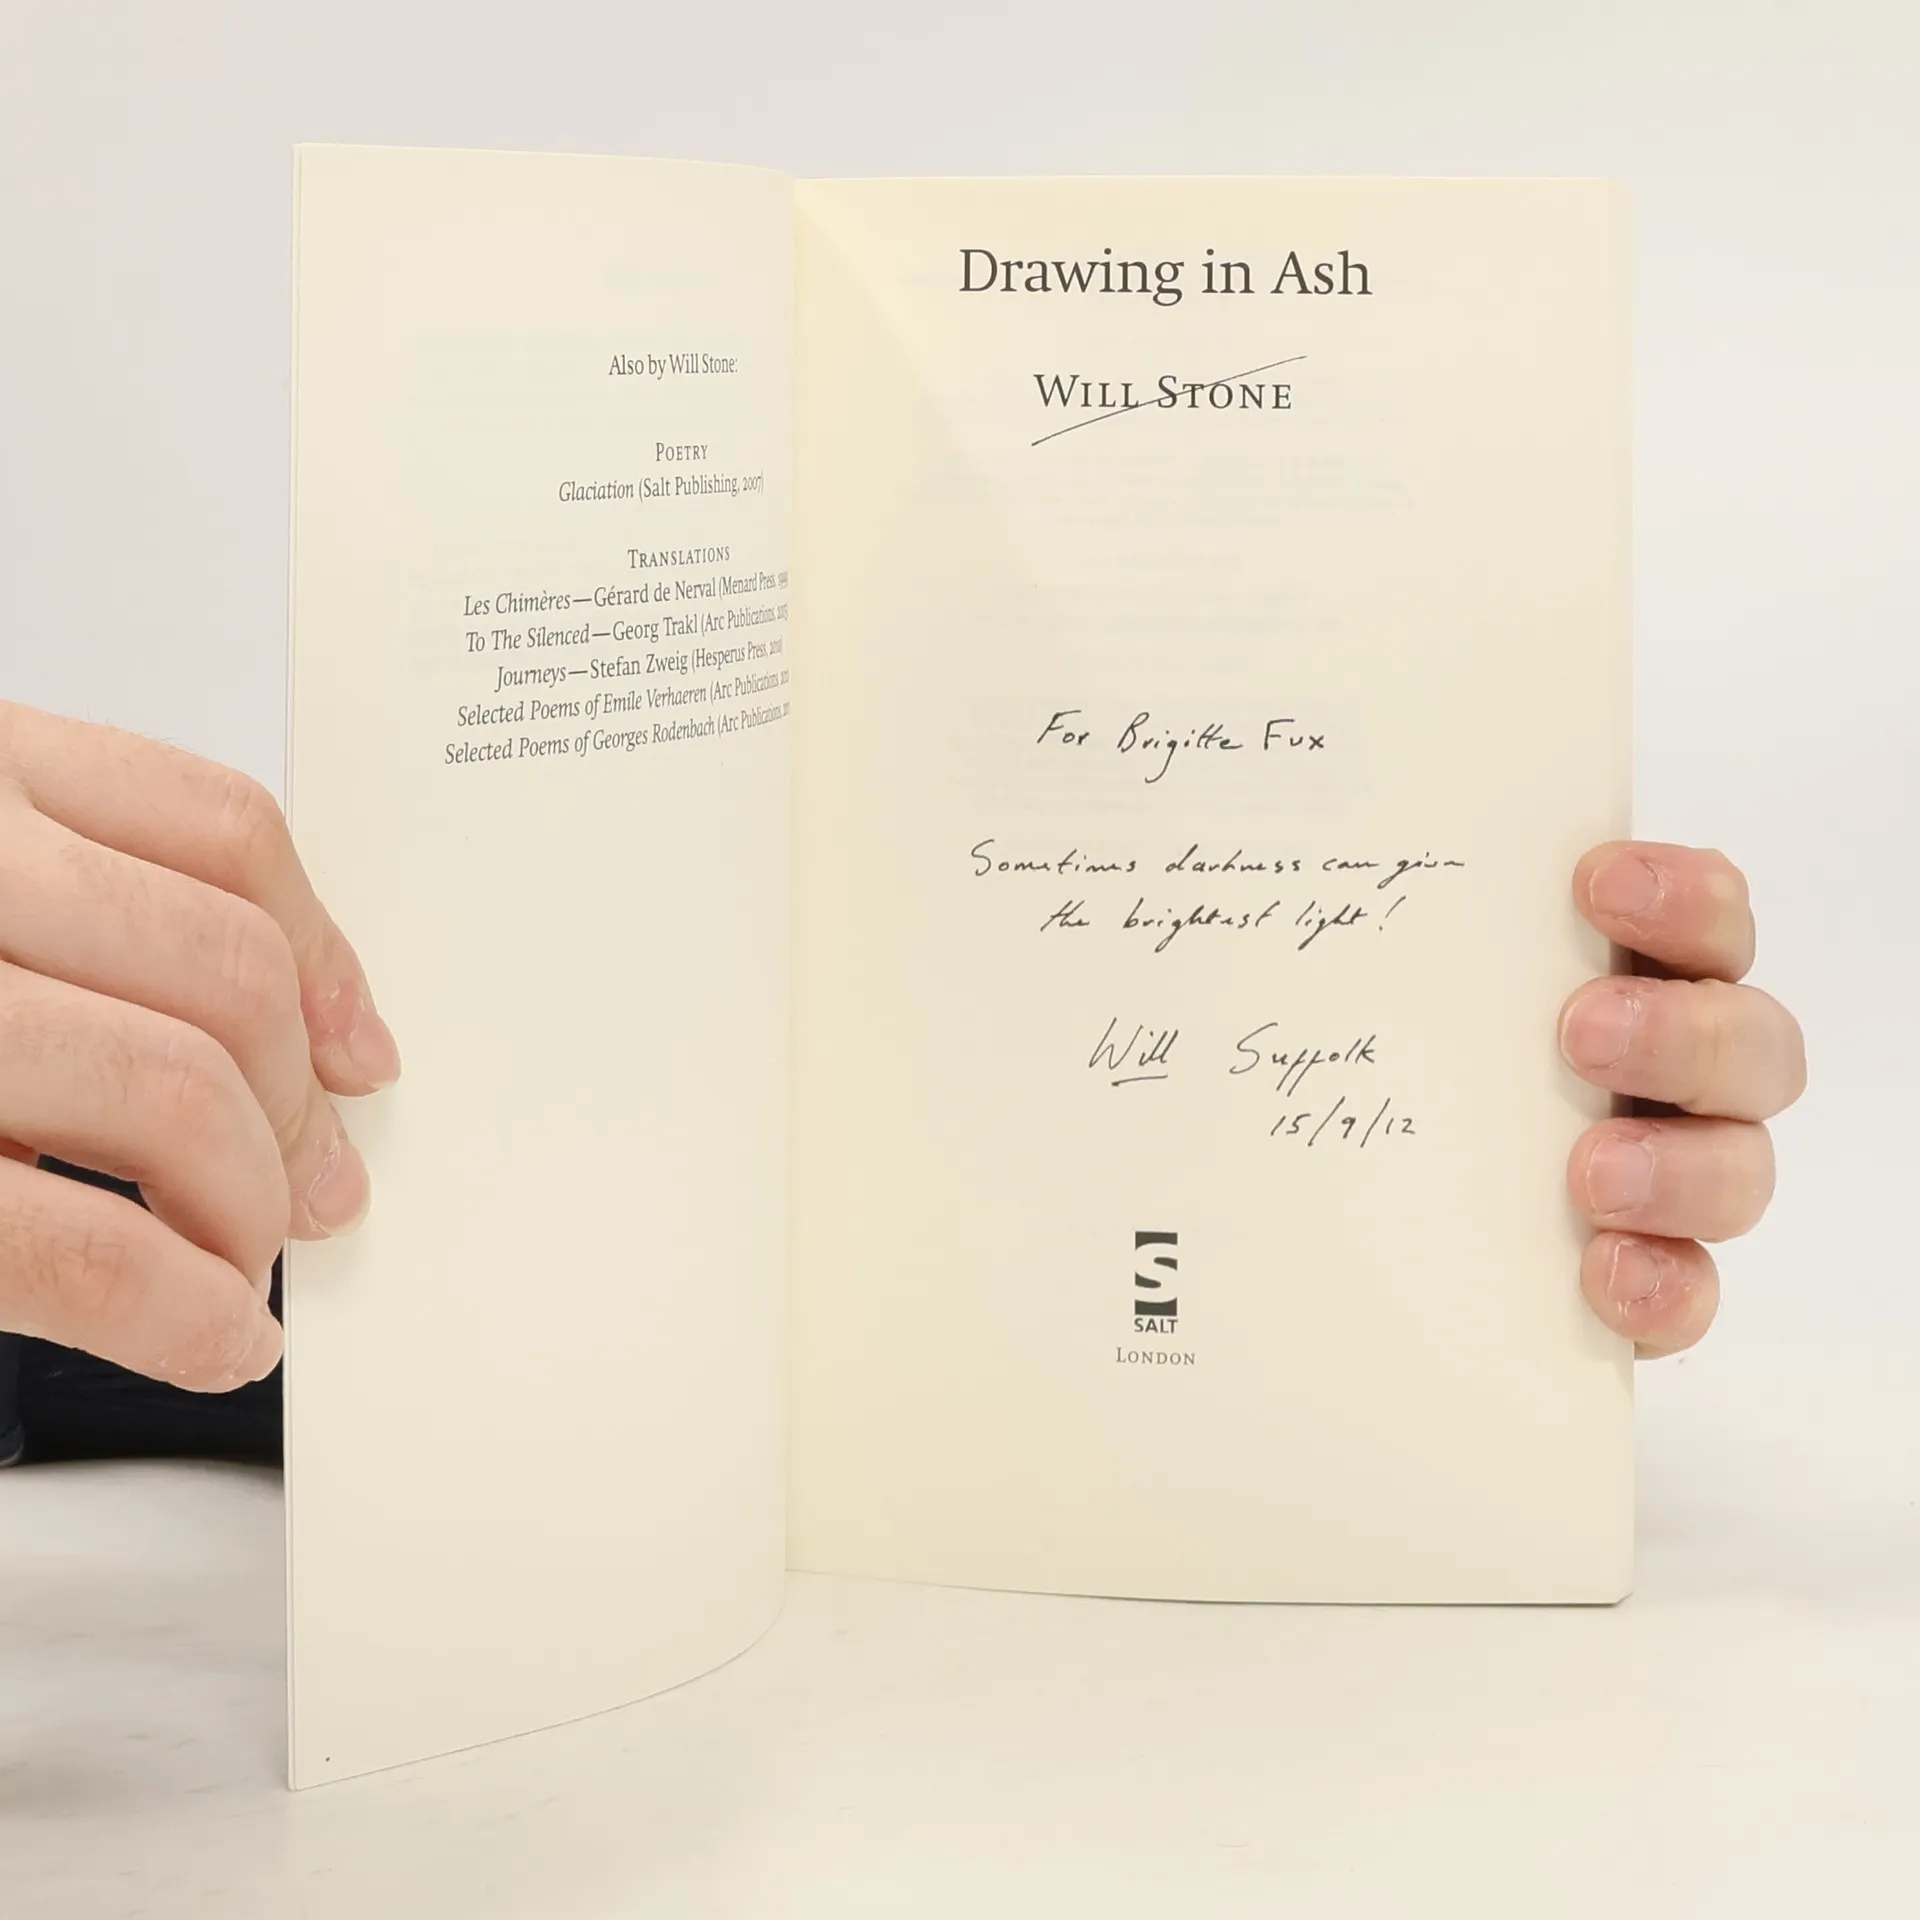 Also by Will Stone:
POETRY
Glaciation (Salt Publishing, 2007)
TRANSLATIONS
Les Chimères—Gérard de Nerval (Menard Press, 1999
To The Silenced—Georg Trakl (Arc Publications,
Journeys—Stefan Zweig (Hesperus Press, 2010)
Selected Poems of Emile Verhaeren (Arc Publications
Selected Poems of Georges Rodenbach (Arc Publications,
Drawing in Ash
WILL STONE
For Brigitte Fux
Sometimes darkness can give
the brightest light!
Will Suffolk
15/9/12
SALT
LONDON